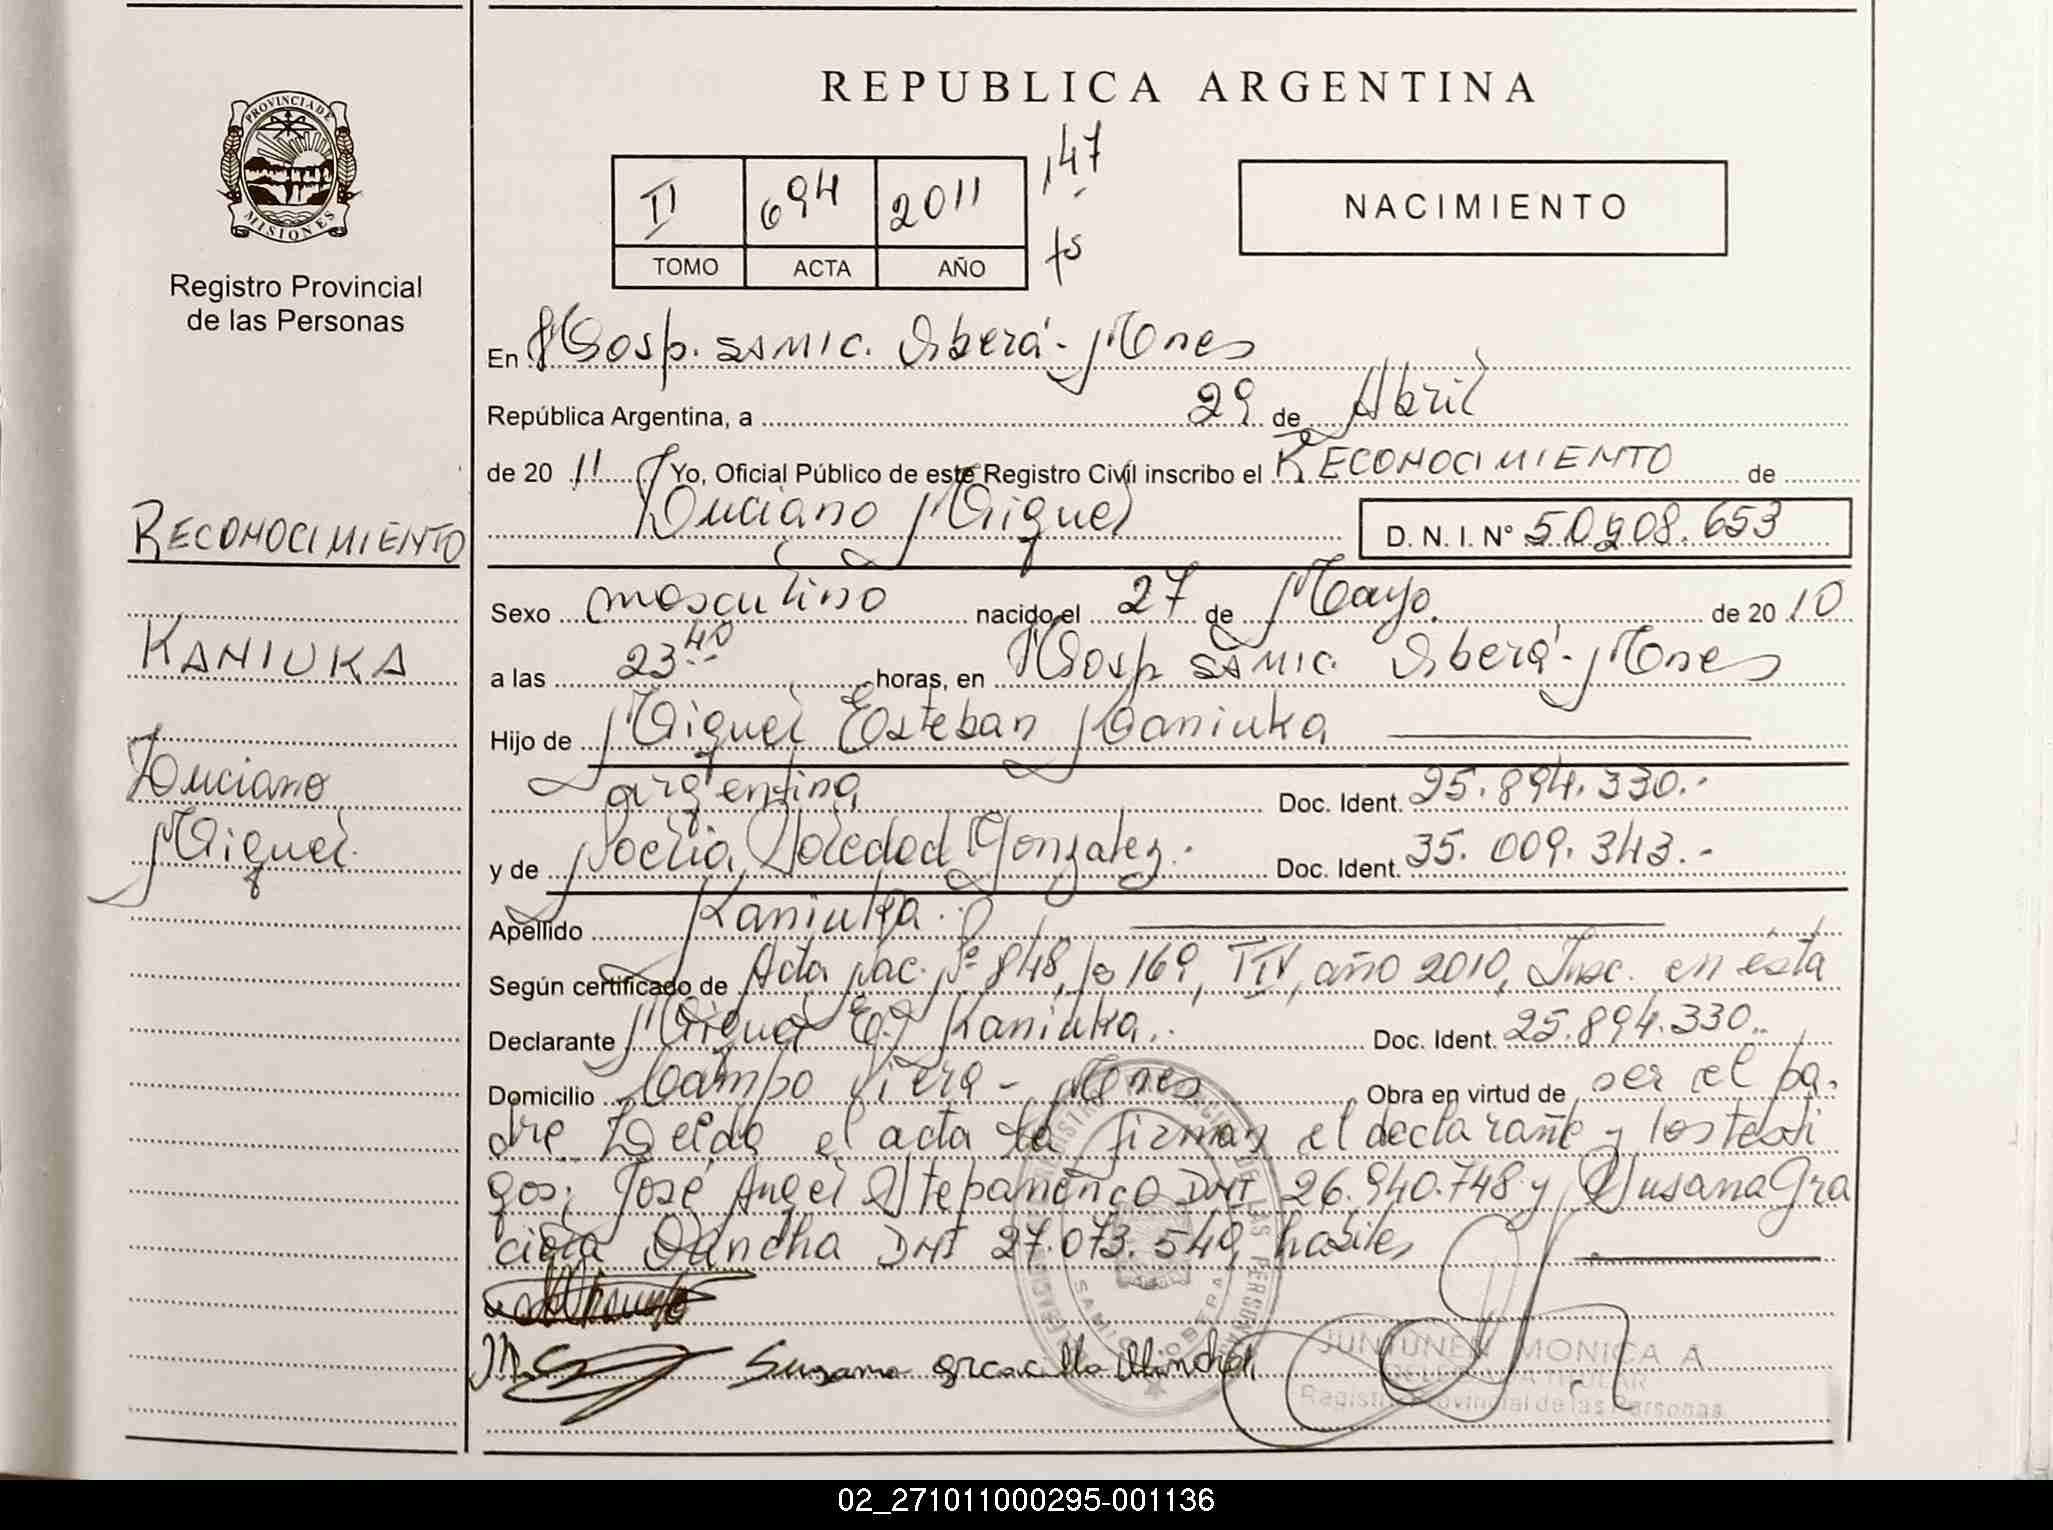 REPUBLICA ARGENTINA
PROVINCIA DE MISIONES
Registro Provincial
de las Personas
II 694 2011
TOMO ACTA AÑO
147
fs
NACIMIENTO
En Hosp. SAMIC. Oberá - Mnes
República Argentina, a 29 de Abril
de 20 11 Yo, Oficial Público de este Registro Civil inscribo el RECONOCIMIENTO de
Luciano Miguel D. N. I. Nº 50.908.653
RECONOCIMIENTO
KANIUKA
Luciano
Miguel
Sexo masculino nacido el 27 de Mayo de 20 10
a las 23 40 horas, en Hosp SAMIC. Oberá - Mnes
Hijo de Miguel Esteban Kaniuka
argentina Doc. Ident. 25.894.330.-
y de Noelia Soledad Gonzalez.- Doc. Ident. 35.009.343.-
Apellido Kaniuka
Según certificado de Acta Nac. Nº 848, fs 169, T IV, año 2010, Insc. en ésta
Declarante Miguel E. Kaniuka. Doc. Ident. 25.894.330
Domicilio Campo Viera - Mnes Obra en virtud de ser el pa-
dre Leida el acta la firman el declarante y los testi
gos; José Angel DNI 26.940.748 y Susana Gra
ciela DNI 27.073.549 habiles
Susana
JUNTUNEN MONICA A
DELEGADA TITULAR
Registro Provincial de las Personas
02_271011000295-001136